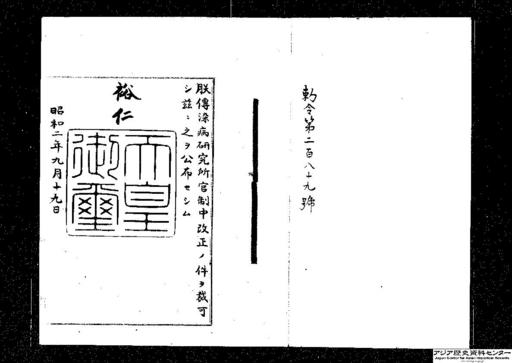 勅令第二百八十九號
朕傳染病硏究所官制中改正ノ件ヲ裁可
シ茲ニ之ヲ公布セシム
裕仁
天皇
御璽
昭和二年九月十九日
アジア歴史資料センター
Japan Center for Asian Historical Records